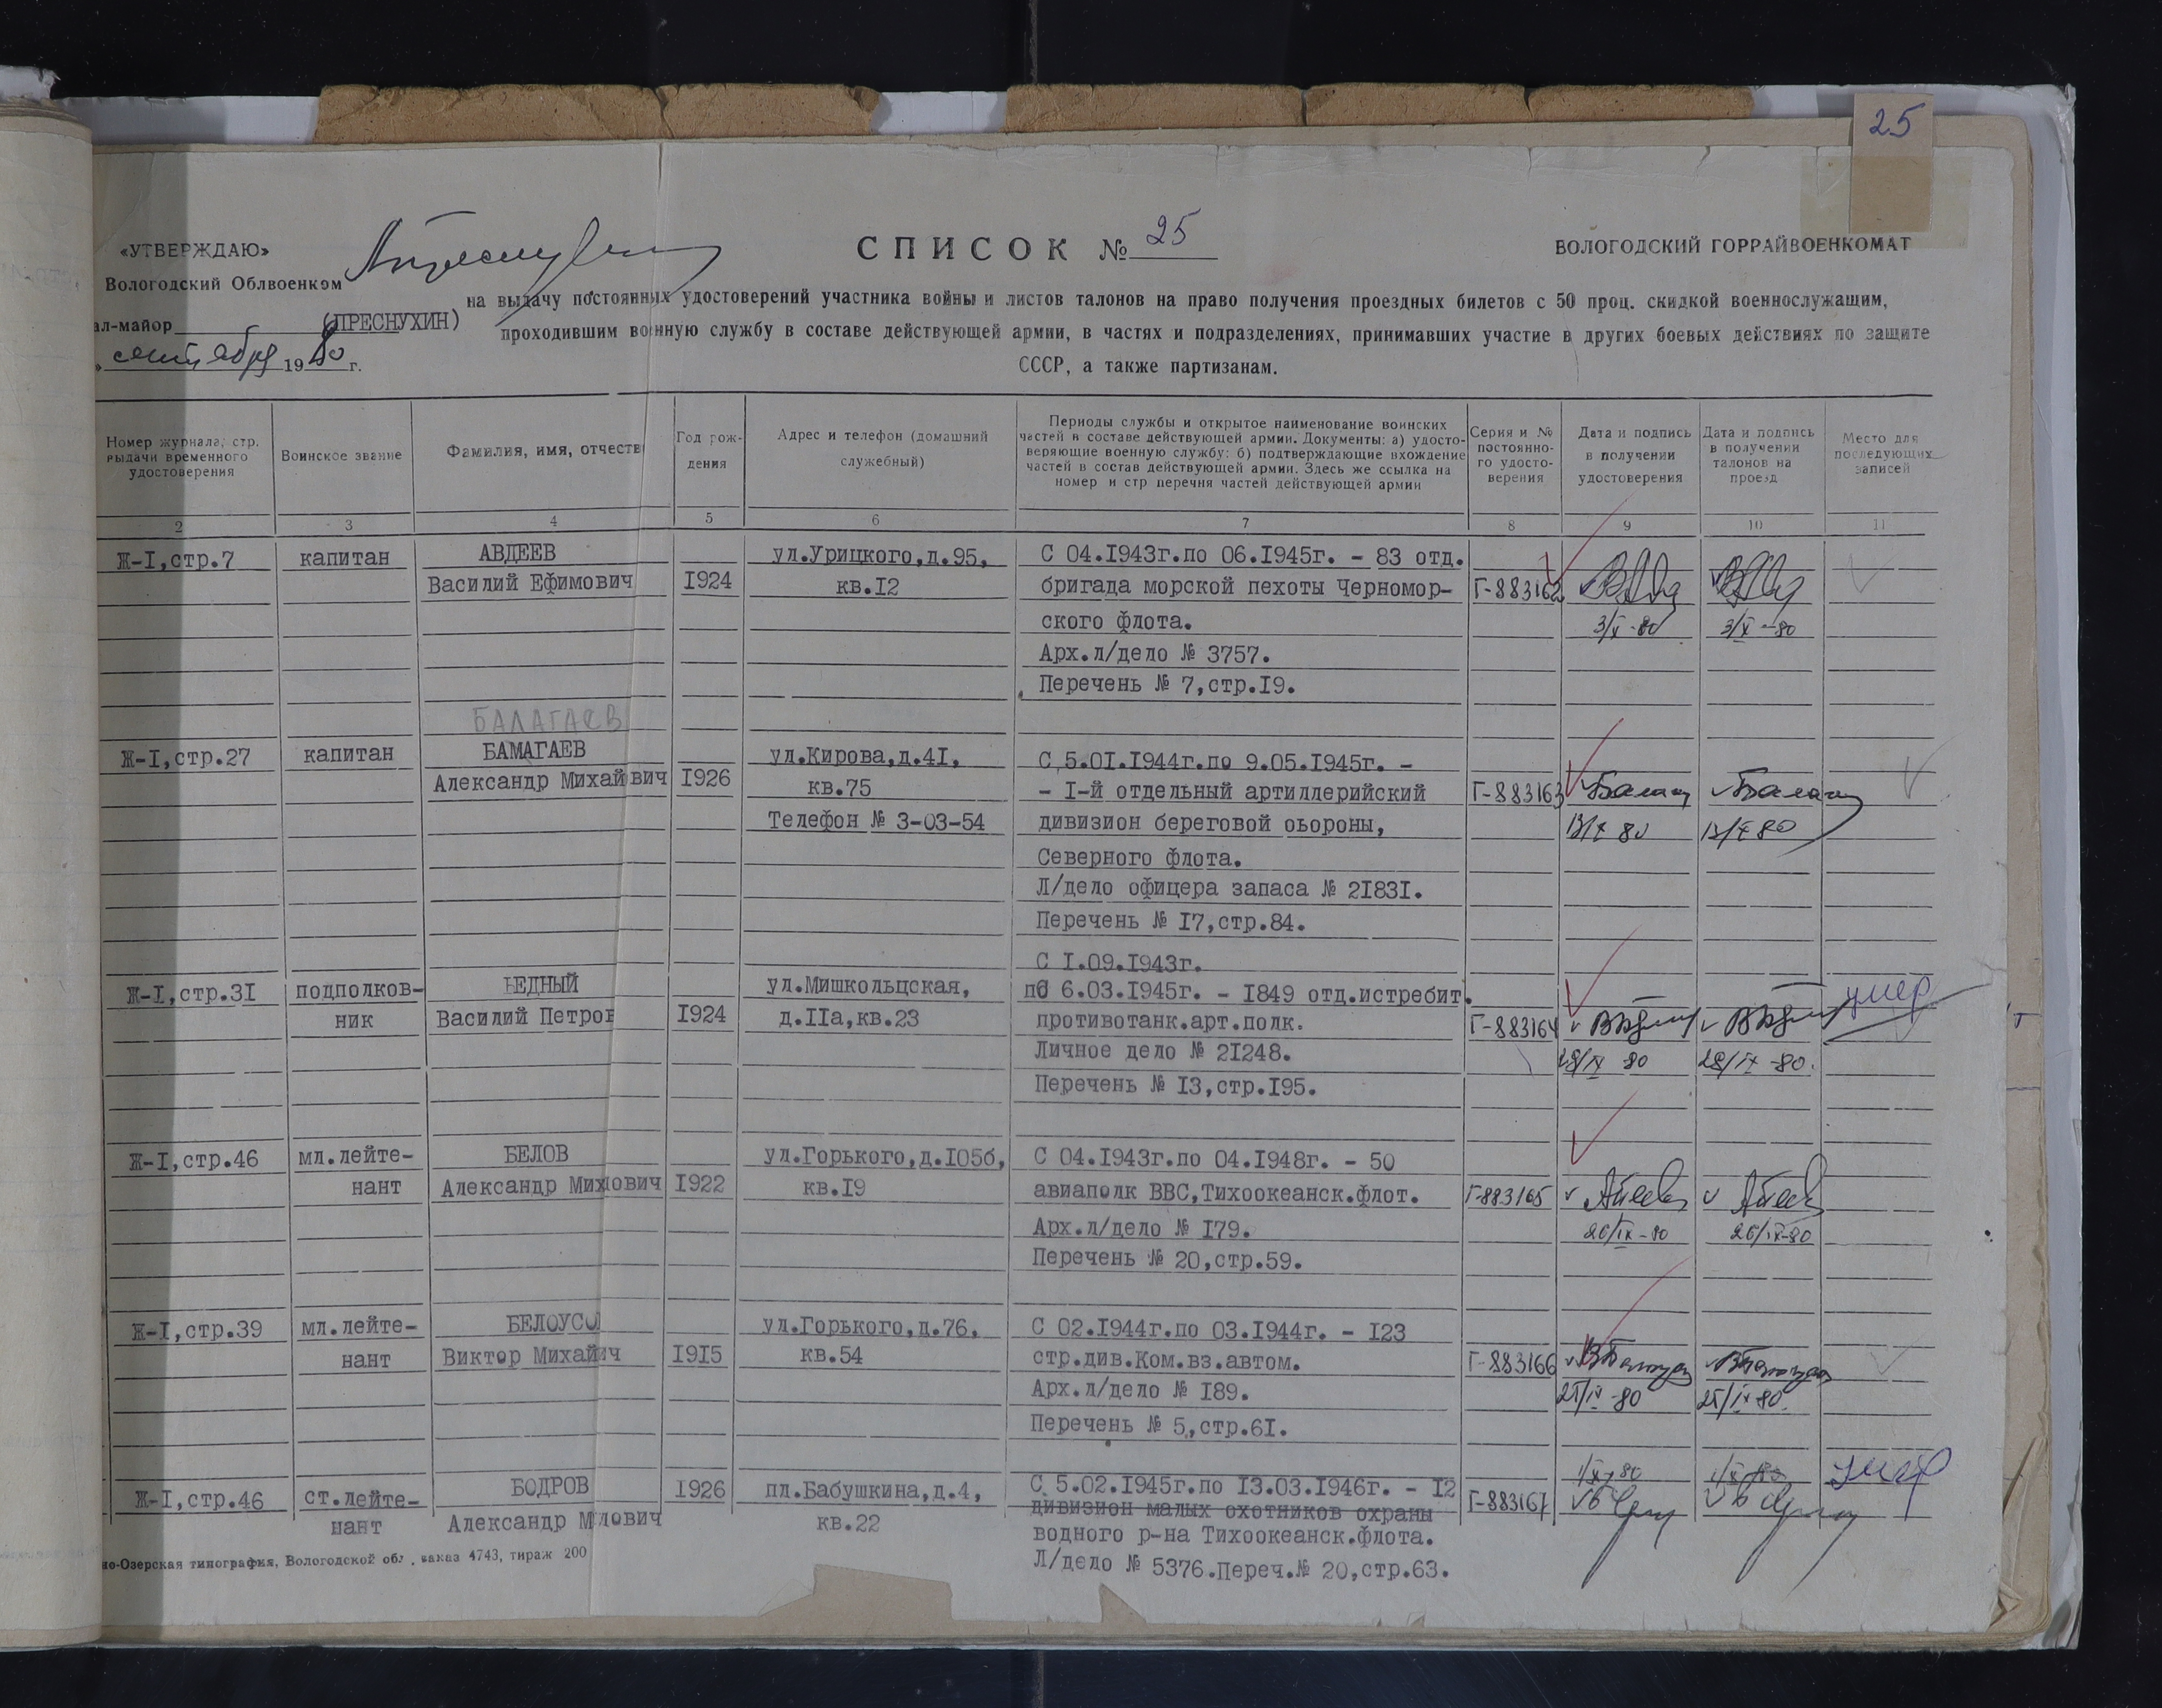 25
«УТВЕРЖДАЮ»
Вологодский Облвоенком
ал-майор (ПРЕСНУХИН)
» сентября 1980 г.
СПИСОК № 25
ВОЛОГОДСКИЙ ГОРРАЙВОЕНКОМАТ
на выдачу постоянных удостоверений участника войны и листов талонов на право получения проездных билетов с 50 проц. скидкой военнослужащим,
проходившим военную службу в составе действующей армии, в частях и подразделениях, принимавших участие в других боевых действиях по защите
СССР, а также партизанам.
Номер журнала, стр. выдачи временного удостоверения
Воинское звание
Фамилия, имя, отчеств
Год рождения
Адрес и телефон (домашний служебный)
Периоды службы и открытое наименование воинских
частей в составе действующей армии. Документы: а) удосто-
веряющие военную службу: б) подтверждающие вхождение
частей в состав действующей армии. Здесь же ссылка на
номер и стр перечня частей действующей армии
Серия и № постоянно-го удосто-верения
Дата и подпись в получении удостоверения
Дата и подпись в получении талонов на проезд
Место для последующих записей
2 3 4 5 6 7 8 9 10 11
Ж-I,стр.7 капитан АВДЕЕВ ул.Урицкого,д.95, С 04.1943г.по 06.1945г. - 83 отд.
Василий Ефимович I924 кв.I2 бригада морской пехоты Черномор- Г-883162
ского флота. 3/X-80 3/X-80
Арх.л/дело № 3757.
Перечень № 7,стр.I9.
БАЛАГАЕВ
Ж-I,стр.27 капитан БАМАГАЕВ ул.Кирова,д.4I, С 5.0I.I944г.по 9.05.I945г. -
Александр Михай вич I926 кв.75 - I-й отдельный артиллерийский Г-883163
Телефон № 3-03-54 дивизион береговой оьороны, 13/X 80 13/X 80
Северного флота.
Л/дело офицера запаса № 2I83I.
Перечень № I7,стр.84.
С I.09.I943г.
Ж-I,стр.3I подполков- БЕДНЫЙ ул.Мишкольцская, по 6.03.I945г. - I849 отд.истребит. умер
ник Василий Петров I924 д.IIа,кв.23 противотанк.арт.полк. Г-883164
Личное дело № 2I248. 28/IX 80 28/IX-80.
Перечень № I3,стр.I95.
Ж-I,стр.46 мл.лейте- БЕЛОВ ул.Горького,д.I05б, С 04.I943г.по 04.I948г. - 50
нант Александр Михлович I922 кв.I9 авиаполк ВВС,Тихоокеанск.флот. Г-883165
Арх.л/дело № I79. 26/IX-80 26/IX-80
Перечень № 20,стр.59.
Ж-I,стр.39 мл.лейте- БЕЛОУСО ул.Горького,д.76, С 02.I944г.по 03.I944г. - I23
нант Виктор Михайич I9I5 кв.54 стр.див.Ком.вз.автом. Г-883166
Арх.л/дело № I89. 25/IX-80 25/IX-80.
Перечень № 5,стр.6I.
1/X-80 1/X-80 умер
Ж-I,стр.46 ст.лейте- БОДРОВ I926 пл.Бабушкина,д.4, С 5.02.I945г.по I3.03.I946г. - I2 Г-883167
нант Александр Млович кв.22 дивизион малых охотников охраны
водного р-на Тихоокеанск.флота.
Л/дело № 5376.Переч.№ 20,стр.63.
но-Озерская типография, Вологодской обл., заказ 4743, тираж 200